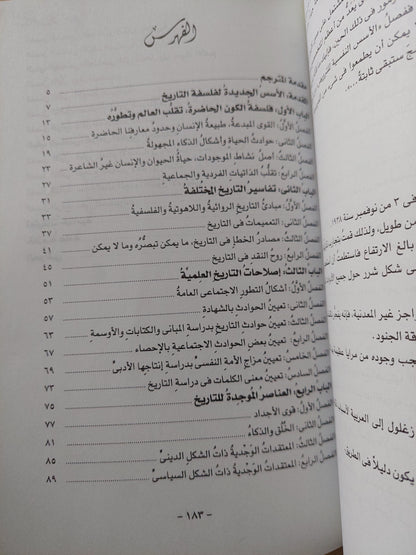 الفهرس
مقدمة المترجم ٥
المقدمة: الأسس الجديدةُ لفلسفة التاريخ ٧
الباب الأول، فلسفةُ الكون الحاضرةُ، تقلُّب العالم وتطوُّرُه ١٣
الفصلُ الأولُ: القوى المبدعةُ، طبيعةُ الإنسان وحدودُ معارفنا الحاضرة ١٥
الفصلُ الثاني: حوادثُ الحياة وأشكالُ الذكاء المجهولةُ ١٩
الفصل الثالث: أصلُ نشاطِ الموجودات، حياةُ الحيوان والإنسان غيرُ الشاعرة ٢٣
الفصل الرابع: تقلُّبُ الذاتيات الفردية والجماعية ٢٧
الباب الثاني، تفاسيرُ التاريخ المختلفةُ ٣١
الفصلُ الأولُ: مبادئُ التاريخ الروائيةُ واللاهوتيةُ والفلسفيةُ ٣٣
الفصل الثاني: التعميماتُ في التاريخ ٣٧
الفصلُ الثالثُ: مصادرُ الخطإِ في التاريخ، ما يمكن تبصُّرُه وما لا يمكن ٤١
الفصلُ الرابعُ: روحُ النقد في التاريخ ٤٥
الباب الثالث، إصلاحاتُ التاريخ العلميةُ ٥١
الفصل الأولُ: أشكالُ التطور الاجتماعي العامةُ ٥٣
الفصل الثاني: تعيينُ الحوادث بالشهادة ٥٧
الفصل الثالث: تعيينُ حوادثِ التاريخ بدراسة المباني والكتابات والأوسمة ٦٣
الفصل الرابع: تعيينُ بعضِ الحوادث الاجتماعية بالإحصاء ٦٧
الفصل الخامس: تعيينُ مزاجِ الأمة النفسيِّ بدراسة إنتاجها الأدبيِّ ٦٩
الفصل السادس: تعيينُ معنى الكلمات في دراسة التاريخ ٧٣
الباب الرابع، العناصرُ الموجدةُ للتاريخ ٧٥
الفصلُ الأولُ: قوى الأجداد ٧٧
الفصل الثاني: الخُلُق والذكاءُ ٨١
الفصل الثالث: المعتقداتُ الوَجْديةُ ذاتُ الشكل الدينيِّ ٨٥
الفصل الرابع: المعتقداتُ الوَجْديةُ ذاتُ الشكل السياسيِّ ٨٩
- ١٨٣ -
يمكن أن يطمعوا في
ستبقى ثابتة
في ٣ من نوفمبر سنة ١٩٢٨
من طويل، ولذلك قمتُ
بالغ الارتفاع فاستطعتُ
شكل شرر حول جميع
اجز غير المعدنية، فإنه
قة الجنود.
جب وجوده من مرايا
زغلول إلى العربية
يكون دليلاً في الطريق